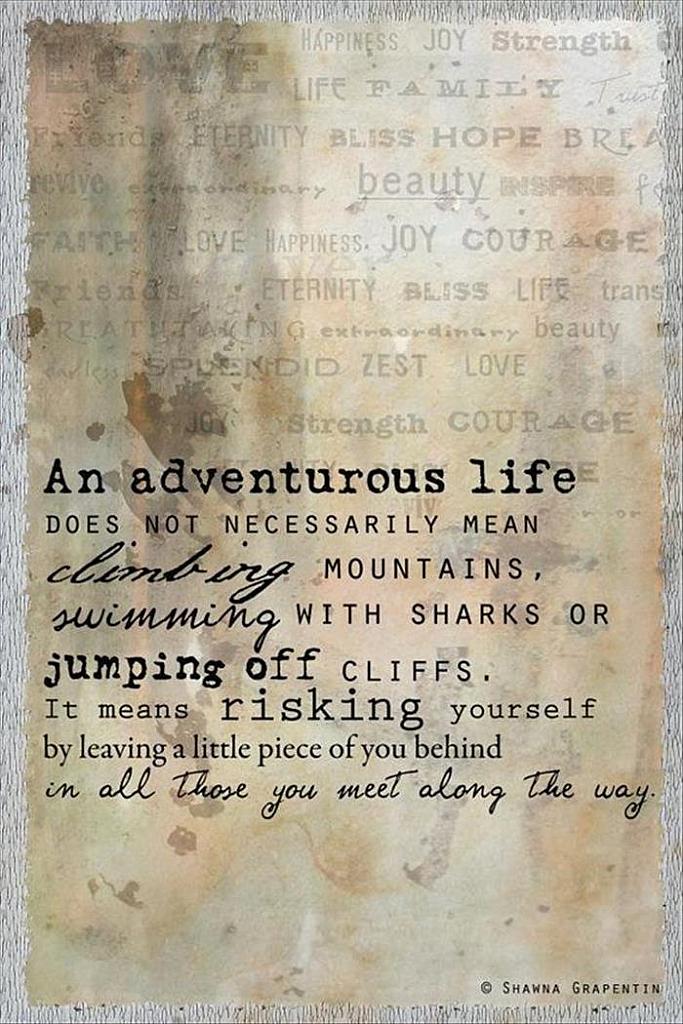 LOVE HAPPINESS JOY Strength
LIFE FAMILY Trust
Friends ETERNITY BLISS HOPE BREA
revive extraordinary beauty INSPIRE fo
FAITH LOVE HAPPINESS JOY COURAGE
Friends ETERNITY BLISS LIFE trans
BREATHTAKING extraordinary beauty
endless SPLENDID ZEST LOVE
JOY Strength COURAGE
An adventurous life
DOES NOT NECESSARILY MEAN
climbing MOUNTAINS,
swimming WITH SHARKS OR
jumping off CLIFFS.
It means risking yourself
by leaving a little piece of you behind
in all those you meet along the way.
© SHAWNA GRAPENTIN